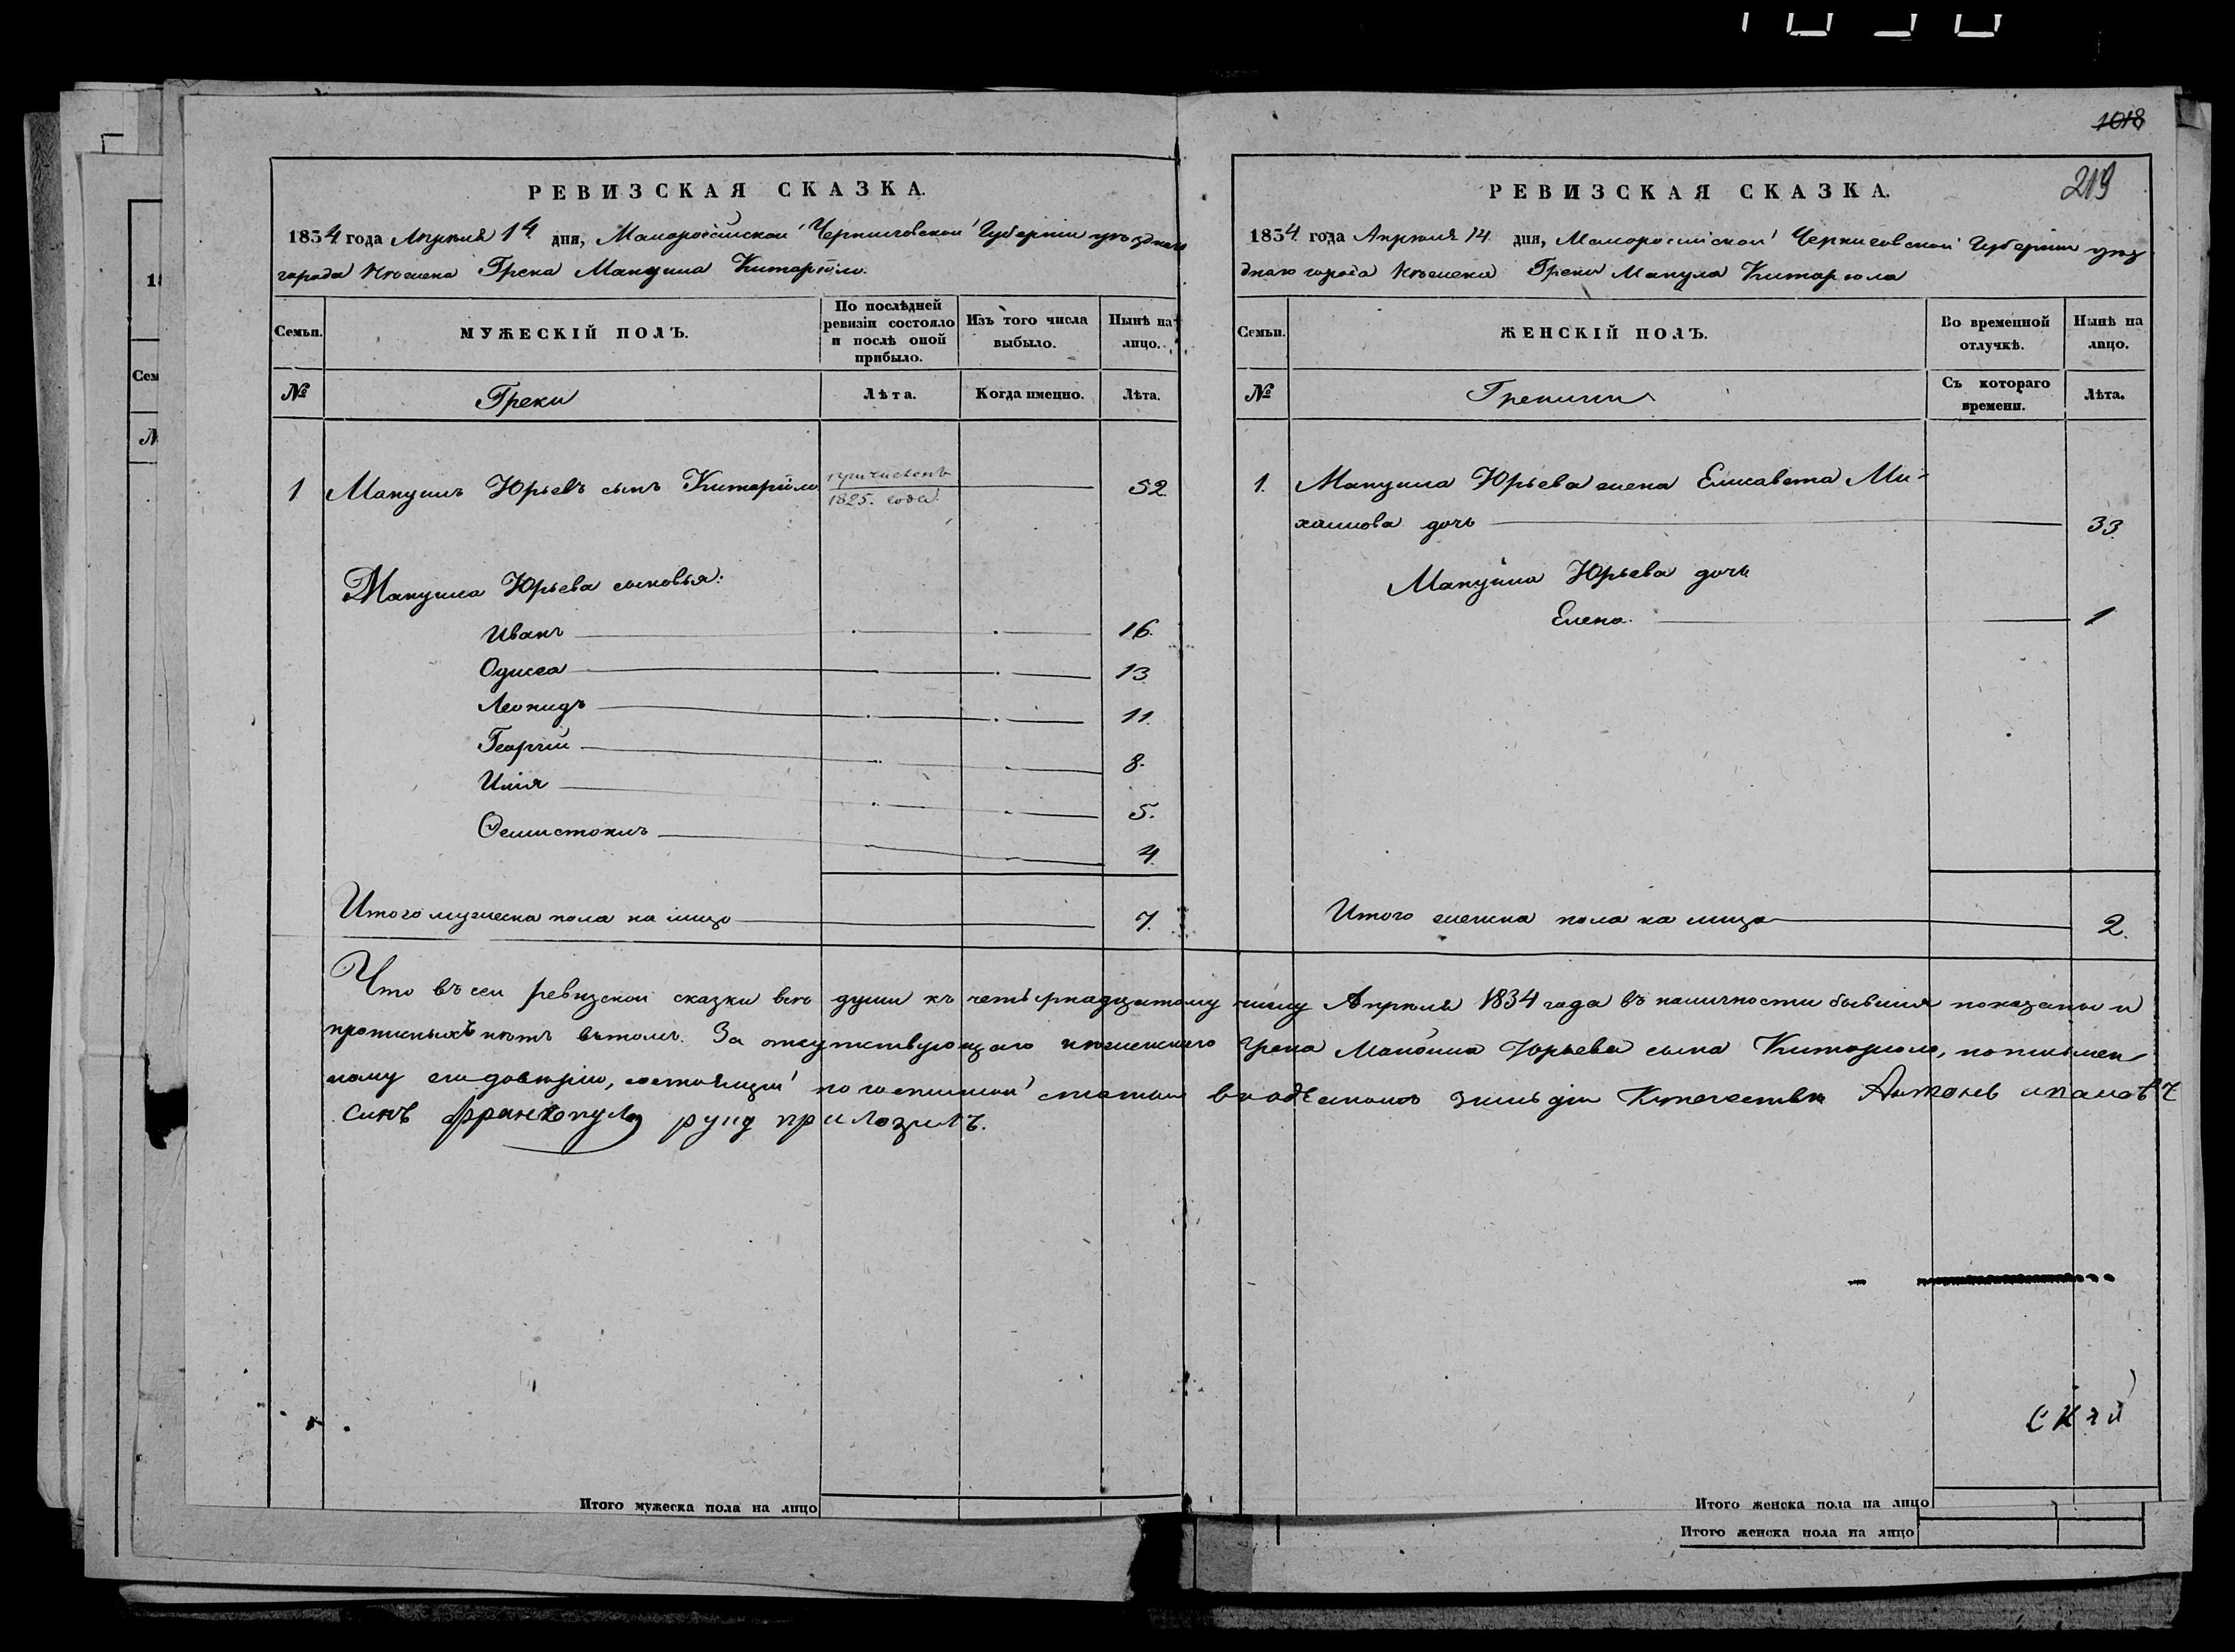 1018
219
РЕВИЗСКАЯ СКАЗКА.
1834 года Апреля 14 дня, Малоросійской Черниговской Губерніи уѣзднаго
города Нѣжина Грека Мануила Китаріоло.
Семьи.
МУЖЕСКІЙ ПОЛЪ.
По послѣдней ревизіи состояло и послѣ оной прибыло.
Изъ того числа выбыло.
Нынѣ на лицо.
№
Греки
Лѣта.
Когда именно.
Лѣта.
1 Мануилъ Юрьевъ сынъ Китаріоло причисленъ 1825. года 52
Мануила Юрьева сыновья:
Иванъ 16.
Одисеа 13
Леонидъ 11.
Георгій 8.
Илія 5.
Ѳемистоклъ 4.
Итого мужеска пола на лицо 7.
РЕВИЗСКАЯ СКАЗКА.
1834 года Апреля 14 дня, Малоросійской Черниговской Губерніи уѣз
днаго города Нѣжина Грека Манула Китаріола
Семьи.
ЖЕНСКІЙ ПОЛЪ.
Во временной отлучкѣ.
Нынѣ на лицо.
№
Съ котораго времени.
Лѣта.
1. Мануила Юрьева жена Елисавета Ми-
хаилова дочь 33
Мануила Юрьева дочь
Елена 1
Итого женска пола на лицо 2.
Что въ сей ревизской сказки всѣ души къ четырнадцатому числу Апреля 1834 года въ наличности бывшия показаны и
прописныхъ нѣтъ вътомъ. За отсутствующаго нѣжинского Грека Мануила Юрьева сына Китариоло, пописмен
ному его довѣрию, состоящій
синъ Франгопуло руку приложилъ.
Итого мужеска пола на лицо
Итого женска пола на лицо
Итого женска пола на лицо